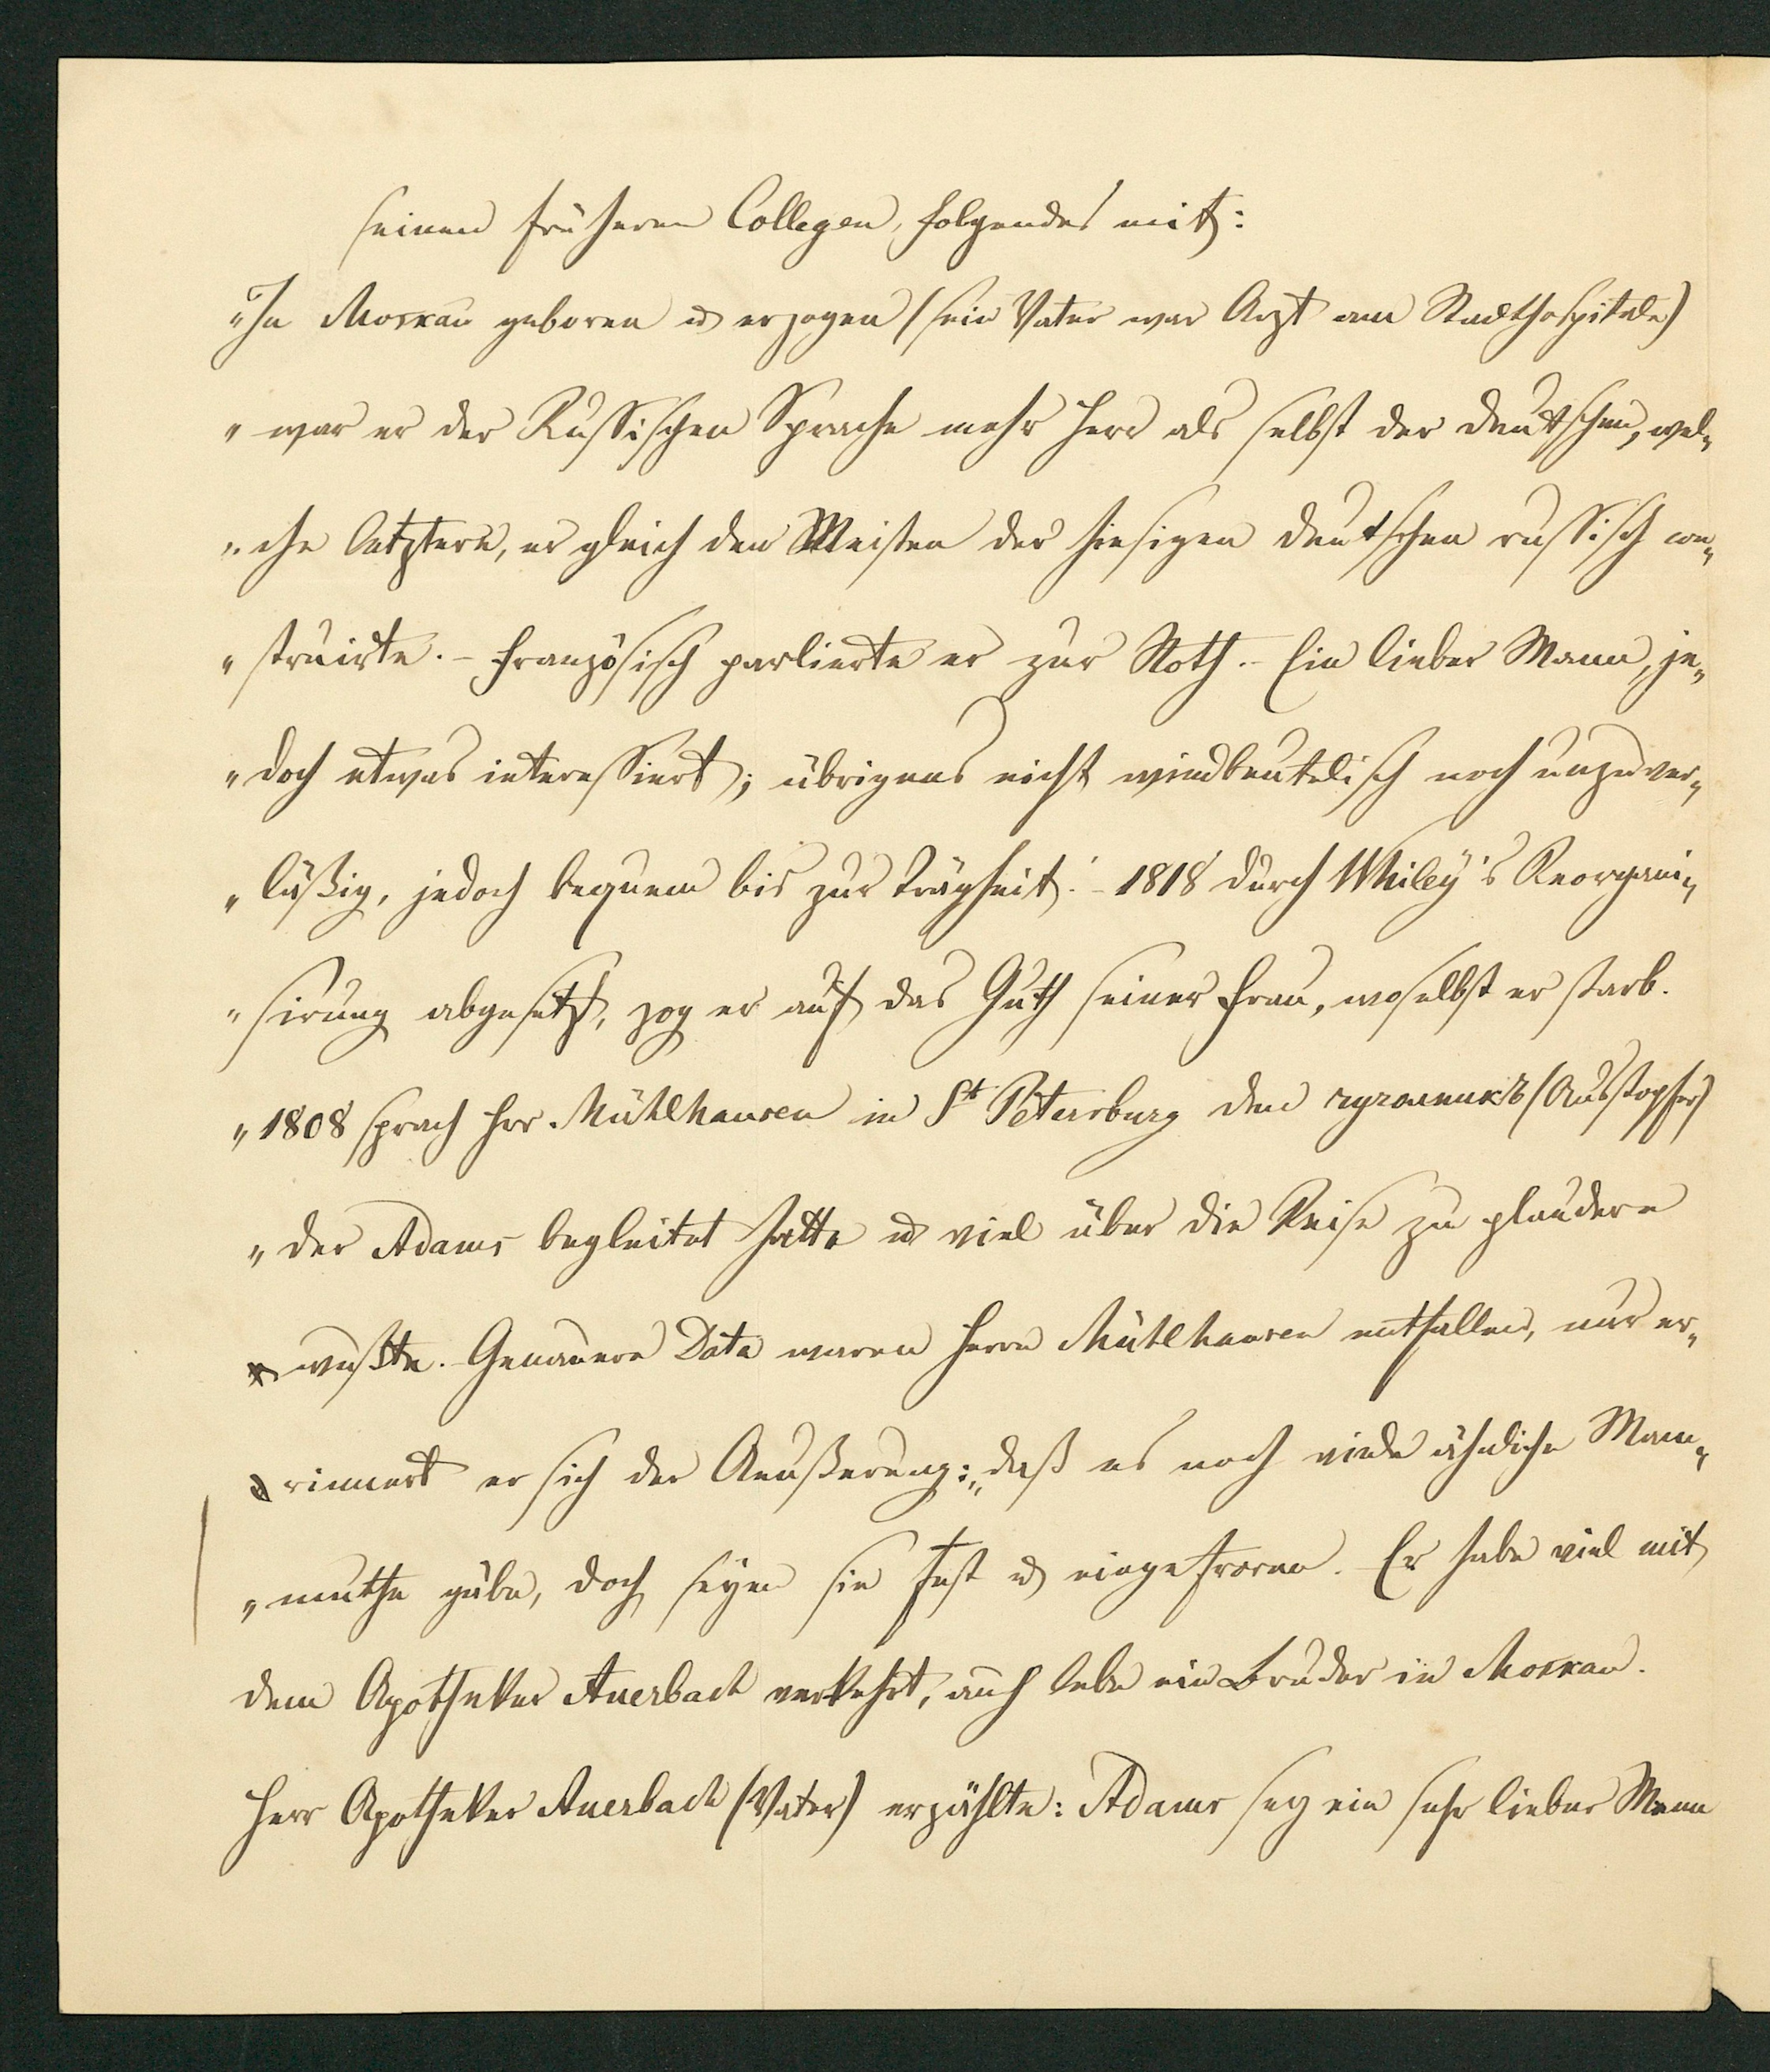 seinen früheren Collegen, folgendes mit:
"In Moskau geboren u erzogen (sein Vater war Arzt am Stadthospitale)
" war er der Russischen Sprache mehr Herr als selbst der deutschen, wel-
" che letztere, er gleich den Meisten der hiesigen deutschen russisch con-
" struirte. – Französisch parlierte er zur Noth. – Ein lieber Mann, je-
" doch etwas interessiert; übrigens nicht windbeutelisch noch unzuver-
" läßig, jedoch bequem bis zur Trägheit. – 1818 durch Whiley's Reorgani-
" sirung abgesetzt, zog er auf das Guth seiner Frau, woselbst er starb.
" 1808 sprach Hrr. Mühlhausen in St Petersburg den (Ausstopfer)
" der Adams begleitet hatte u viel über die Reise zu plaudern
" wußte. Genauere Data waren Herrn Mühlhausen entfallen, nur er-
" rinnert er sich der Aeußerung: „daß es noch viele ähnliche Mam-
" muthe gäbe, doch seyen sie fest u eingefroren. Er habe viel mit
dem Apotheker Auerbach verkehrt, auch lebe ein Bruder in Moskau.
Herr Apotheker Auerbach (Vater) erzählte: Adams sey ein sehr lieber Mann